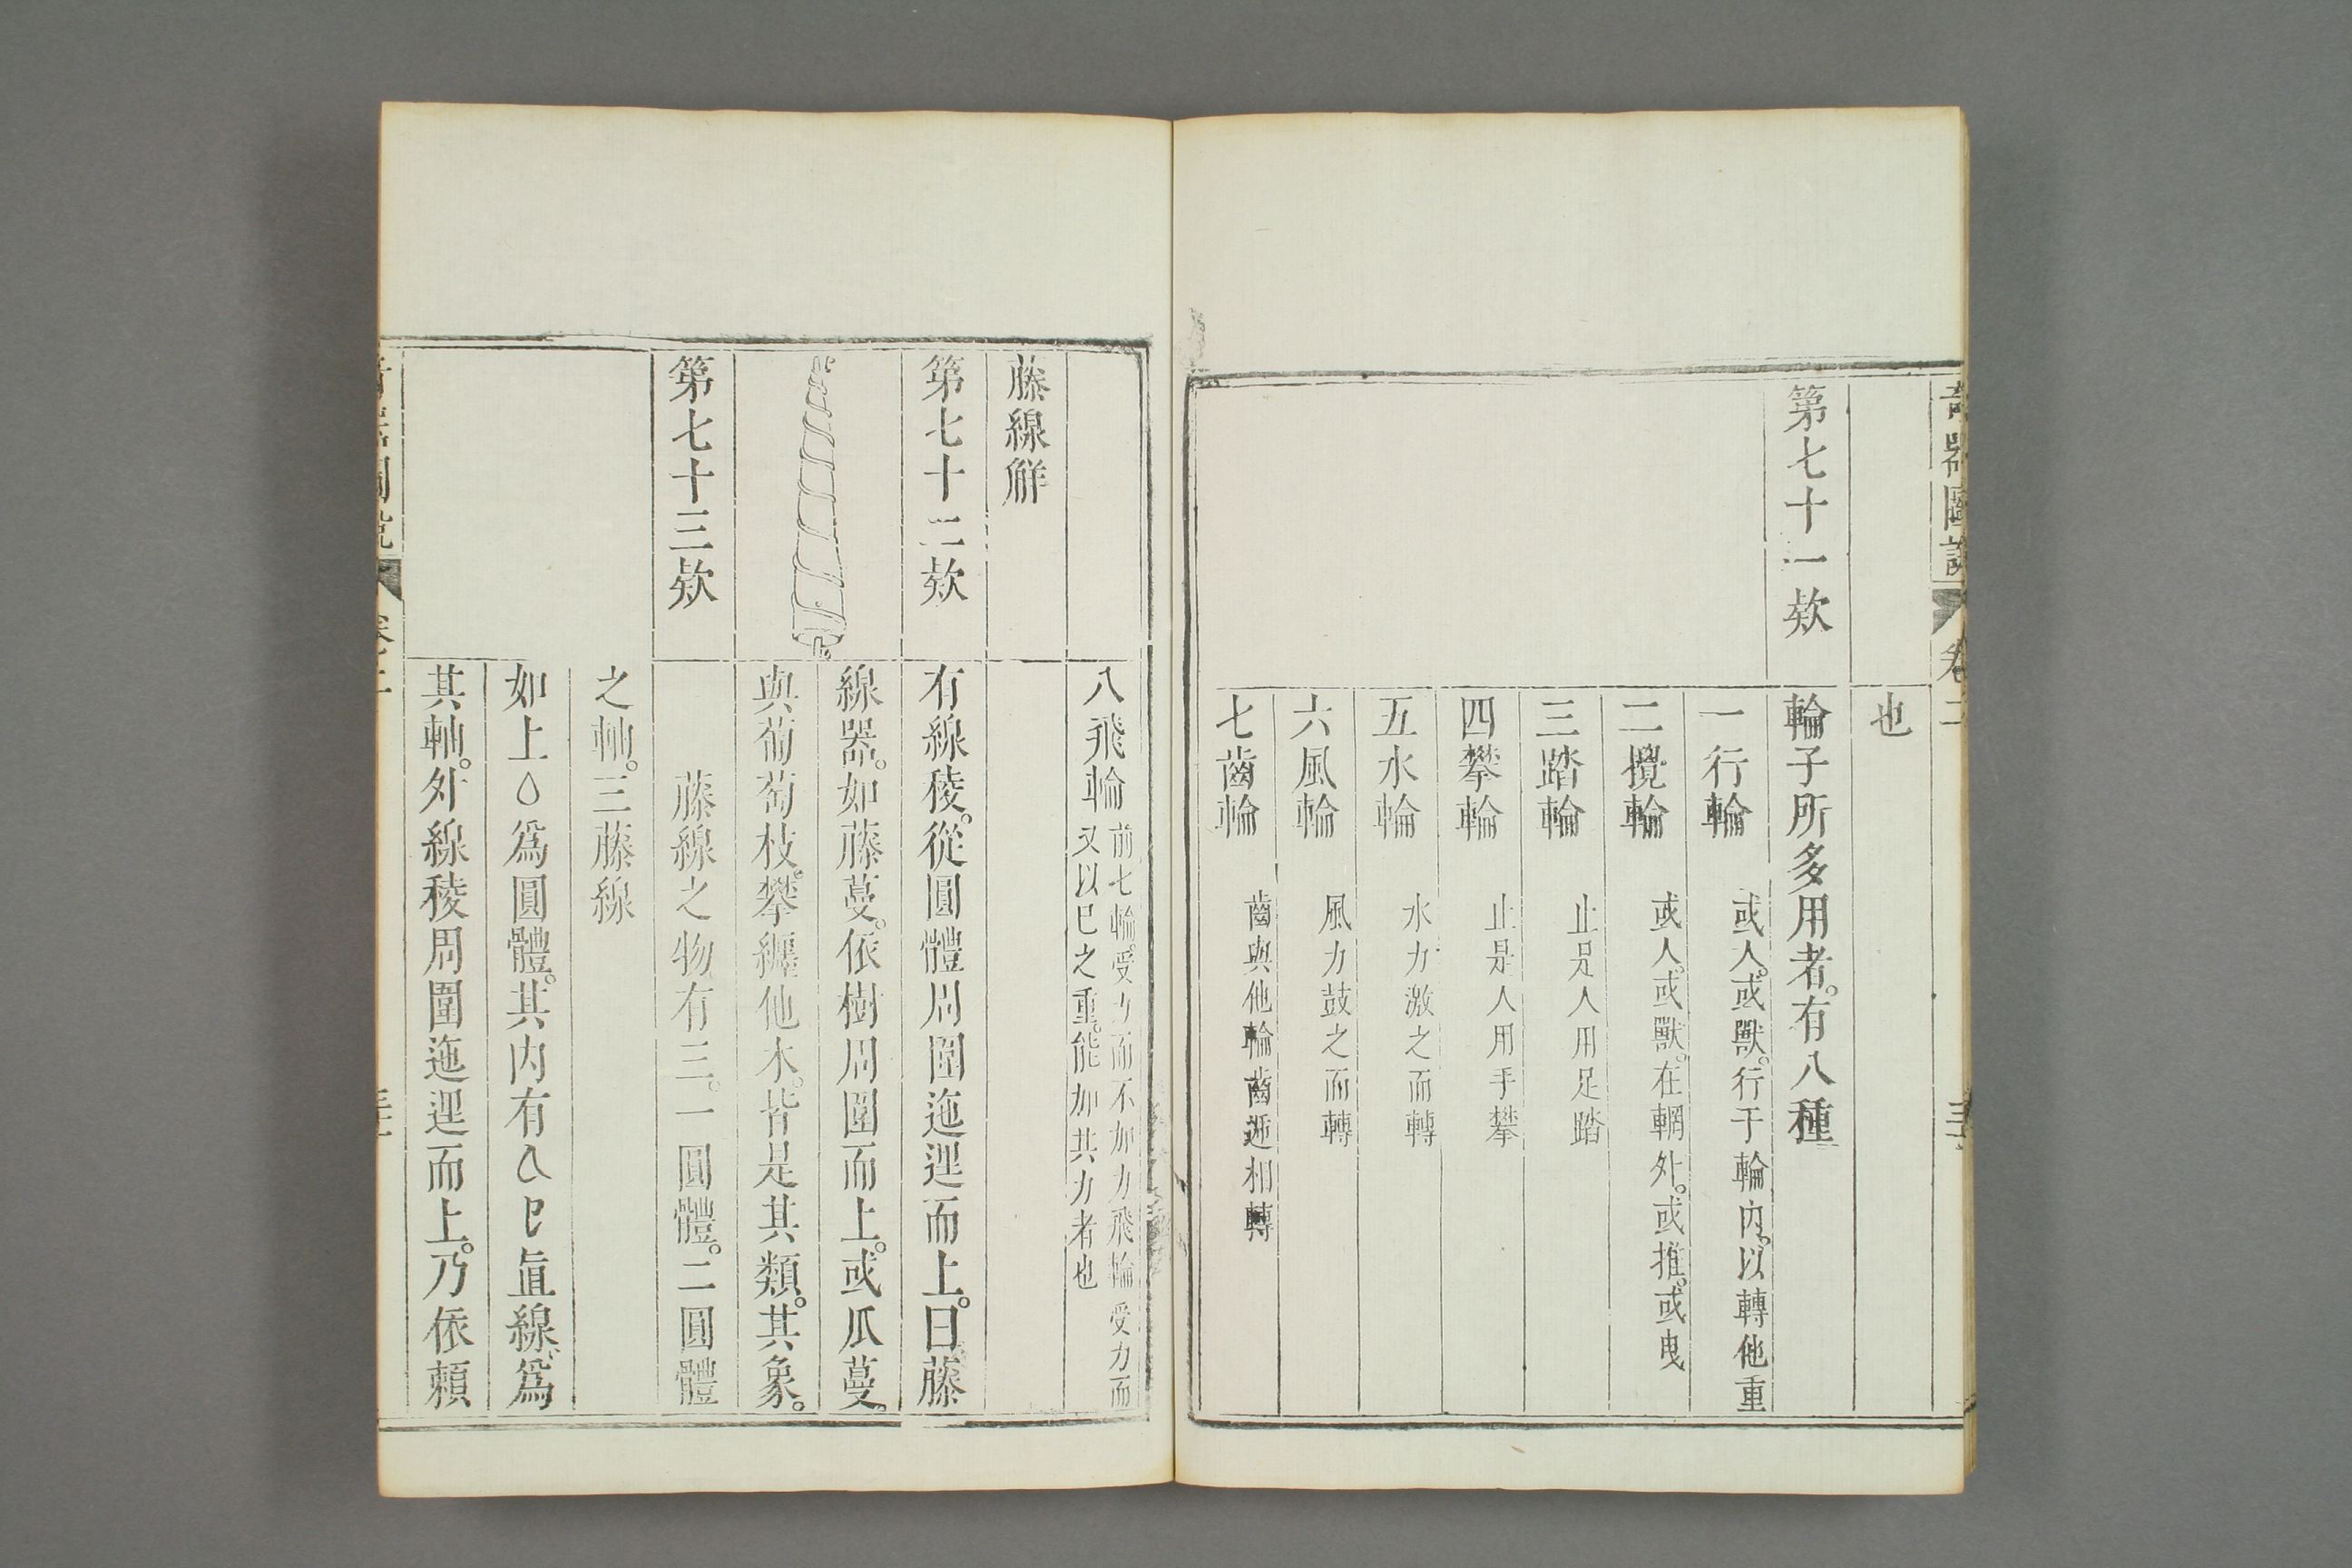 奇器圖說 卷二
也
第七十一欵
輪子所多用者。有八種
一行輪 或人。或獸。行于輪內。以轉他重
二攪輪 或人。或獸。在輞外。或推。或曳
三踏輪 止是人用足踏
四攀輪 止是人用手攀
五水輪 水力激之而轉
六風輪 風力鼓之而轉
七齒輪 齒與他輪齒遞相轉
八飛輪 前七輪。受力而不加力飛輪受力而
又以巳之重。能加其力者也
藤線解
第七十二欵
有線稜。從圓體周圍迤邐而上。曰藤
線器。如藤蔓。依樹周圍而上。或瓜蔓。
與葡萄枝。攀纏他木。皆是其類。其象。
第七十三欵
藤線之物有三。一圓體。二圓體
之軸。三藤線
如上為圓體。其內有直線。為
其軸。外線稜周圍迤邐而上。乃依賴
奇器圖說 卷二